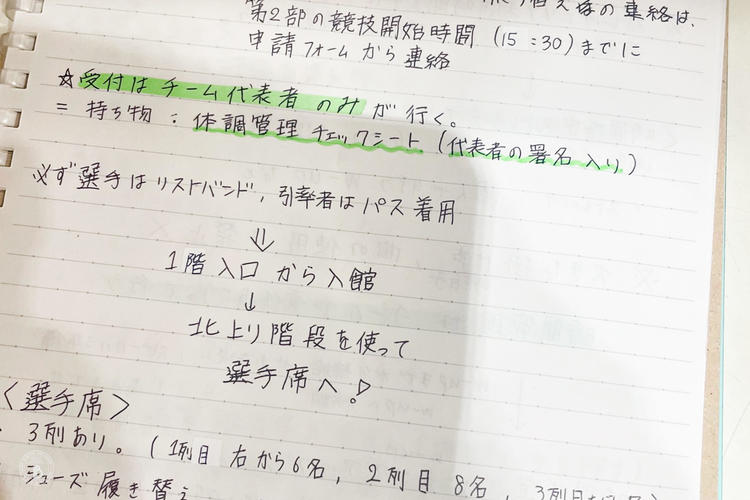 の連絡は、
第2部の競技開始時間 (15:30)までに
申請フォームから連絡
☆受付はチーム代表者のみが行く。
= 持ち物：体調管理チェックシート (代表者の署名入り)
必ず選手はリストバンド、引率者はパス着用
⇓
1階入口から入館
↓
北上り階段を使って
選手席へ!
〈選手席〉
・3列あり。(1列目 右から6名, 2列目 8名, 3列目
シューズ履き替え